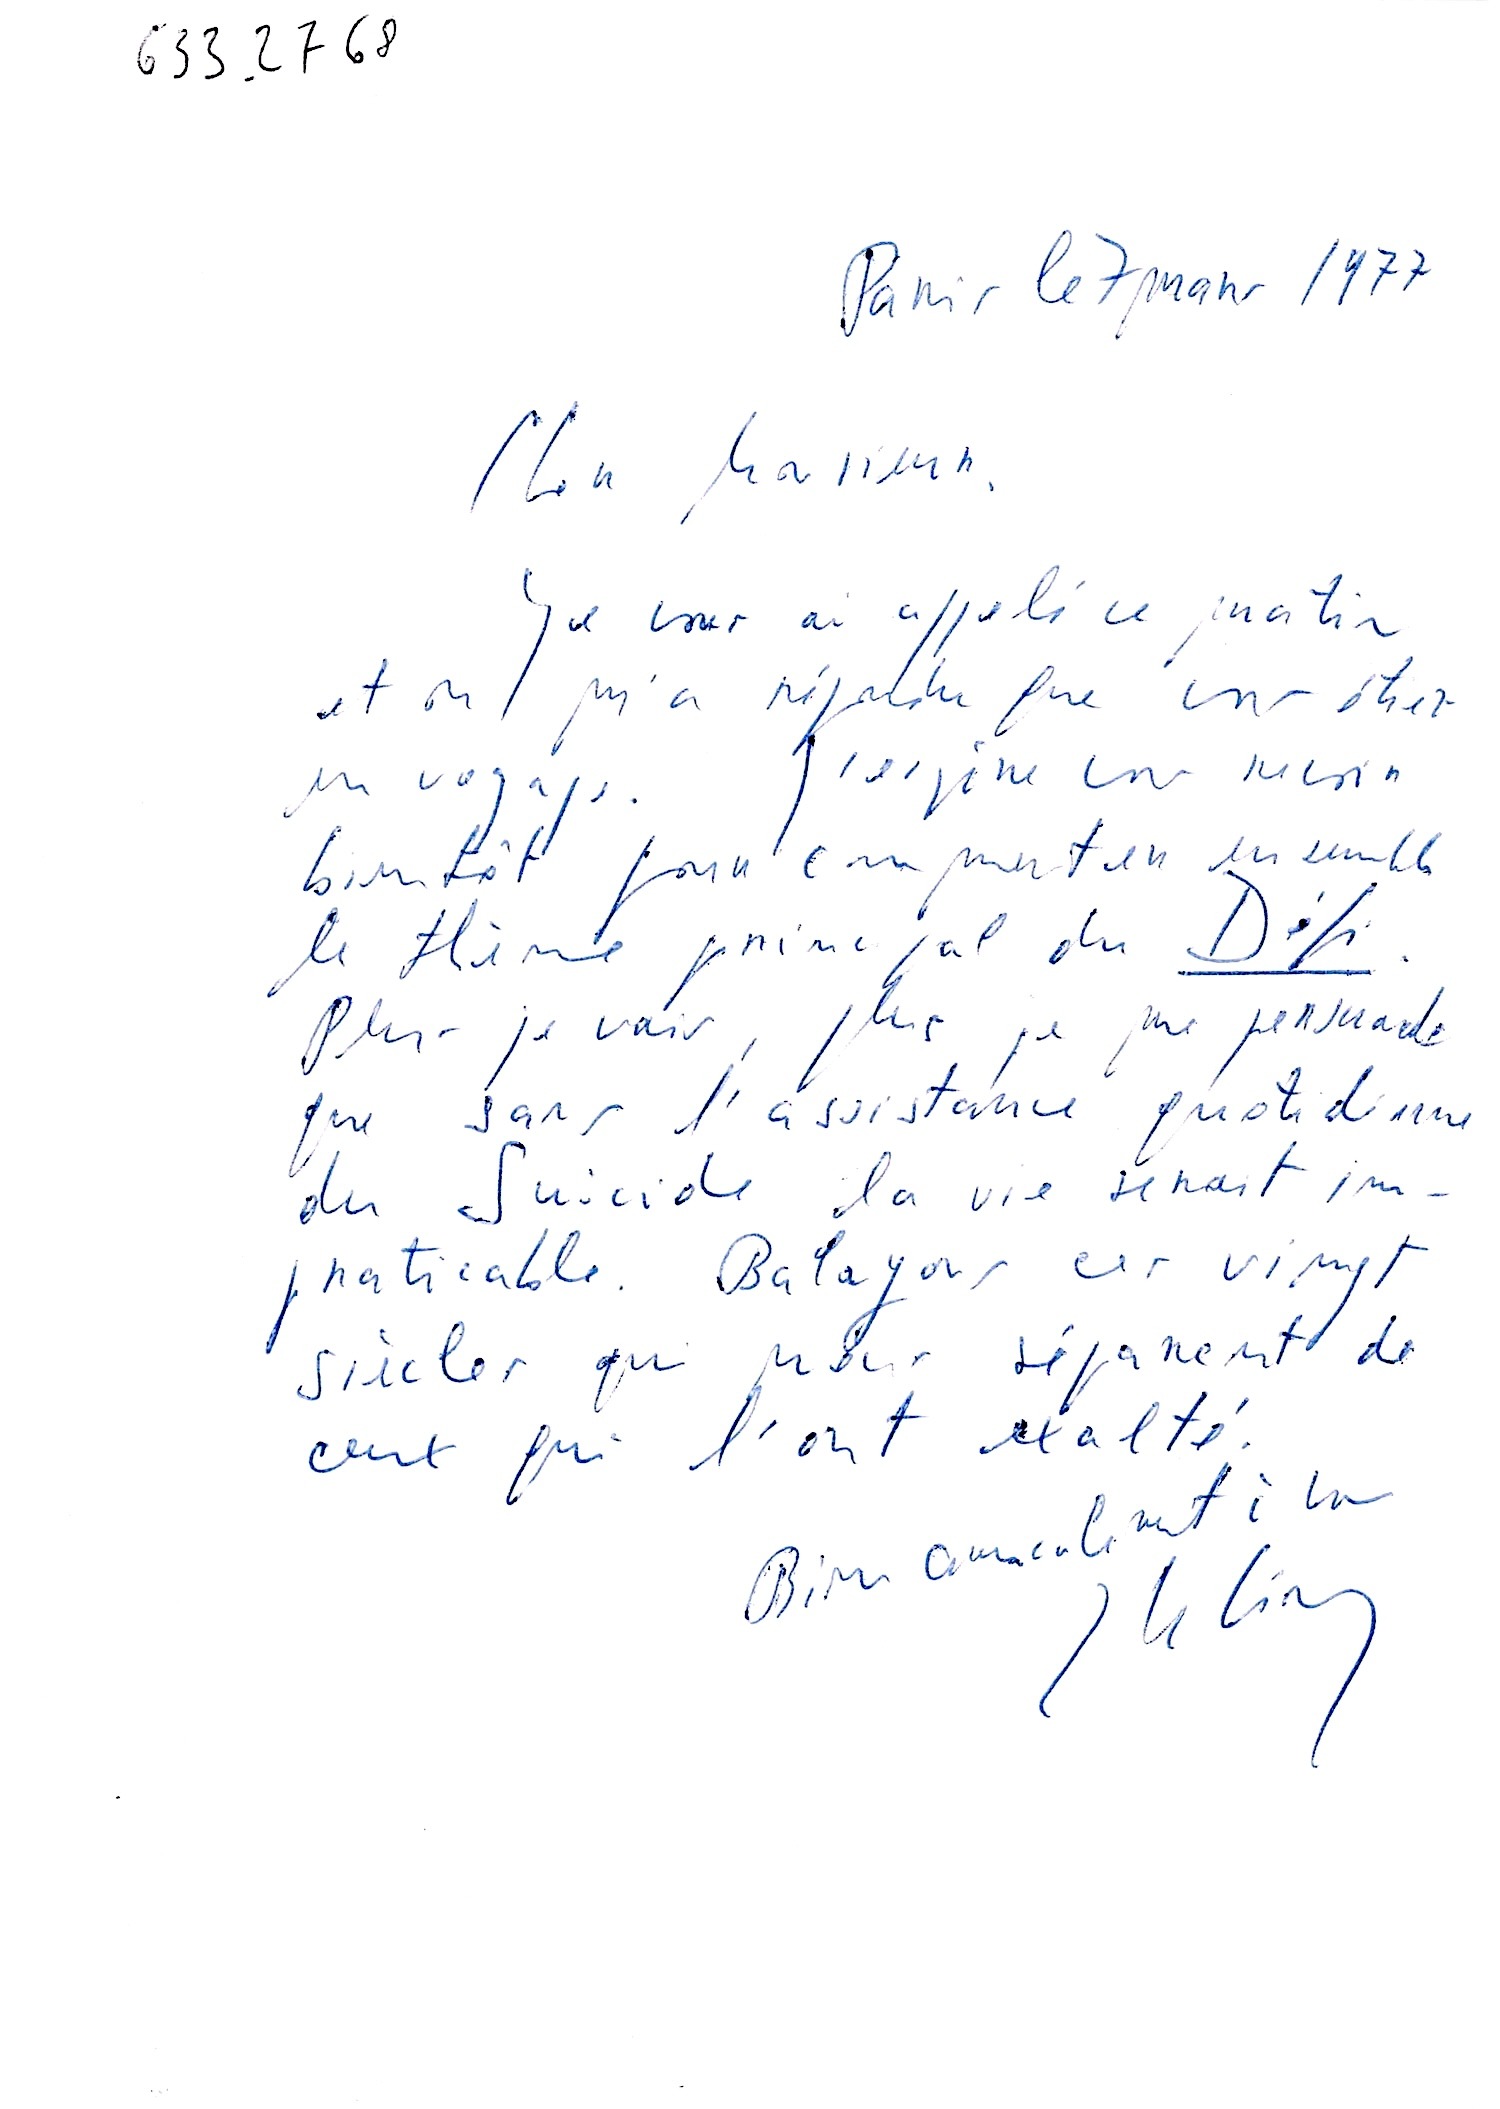 633.27 68
Paris le 7 mars 1977
Cher Monsieur.
Je vous ai appelé ce matin
et on m'a répondu que vous étiez
en voyage. J'espère vous revoir
bientôt pour commenter ensemble
le thème principal du Défi.
Plus je vais, plus je me persuade
que sans l'assistance quotidienne
du Suicide la vie serait im-
praticable. Balayons ces vingt
siècles qui nous séparent de
ceux qui l'ont exalté.
Bien amicalement à vous